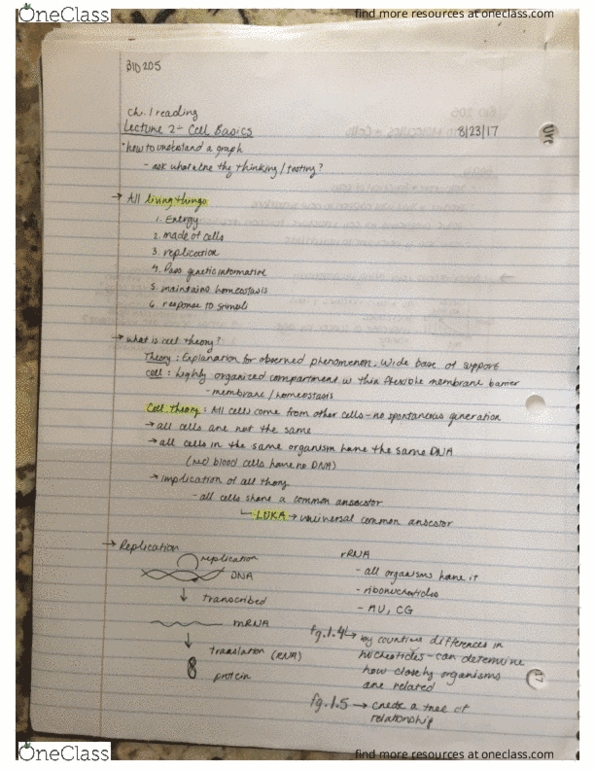 OneClass
find more resources at oneclass.com
BIO 205
Ch. 1 reading
Lecture 2 - Cell Basics 8/23/17
how to understand a graph
- ask what are they thinking / testing?
→ All living things
1. Energy
2. made of cells
3. replication
4. Pass genetic information
5. maintains homeostasis
6. response to stimuli
→ what is cell theory?
Theory: Explanation for observed phenomenon, wide base of support
cell: highly organized compartment w thin flexible membrane barrier
- membrane / homeostasis
Cell theory: All cells come from other cells - no spontaneous generation
→ all cells are not the same
→ all cells in the same organism have the same DNA
(red blood cells have no DNA)
→ implication of all theory
- all cells share a common ancestor
↳ LUKA → universal common ancestor
→ Replication
replication
DNA
↓ transcribed
mRNA
↓ translation (RNA)
protein
rRNA
- all organisms have it
- ribonucleotides
- AU, CG
fg. 1.4 → by counting differences in
nucleotides - can determine
how closely organisms
are related
fg. 1.5 → create a tree of
relationship
OneClass
find more resources at oneclass.com